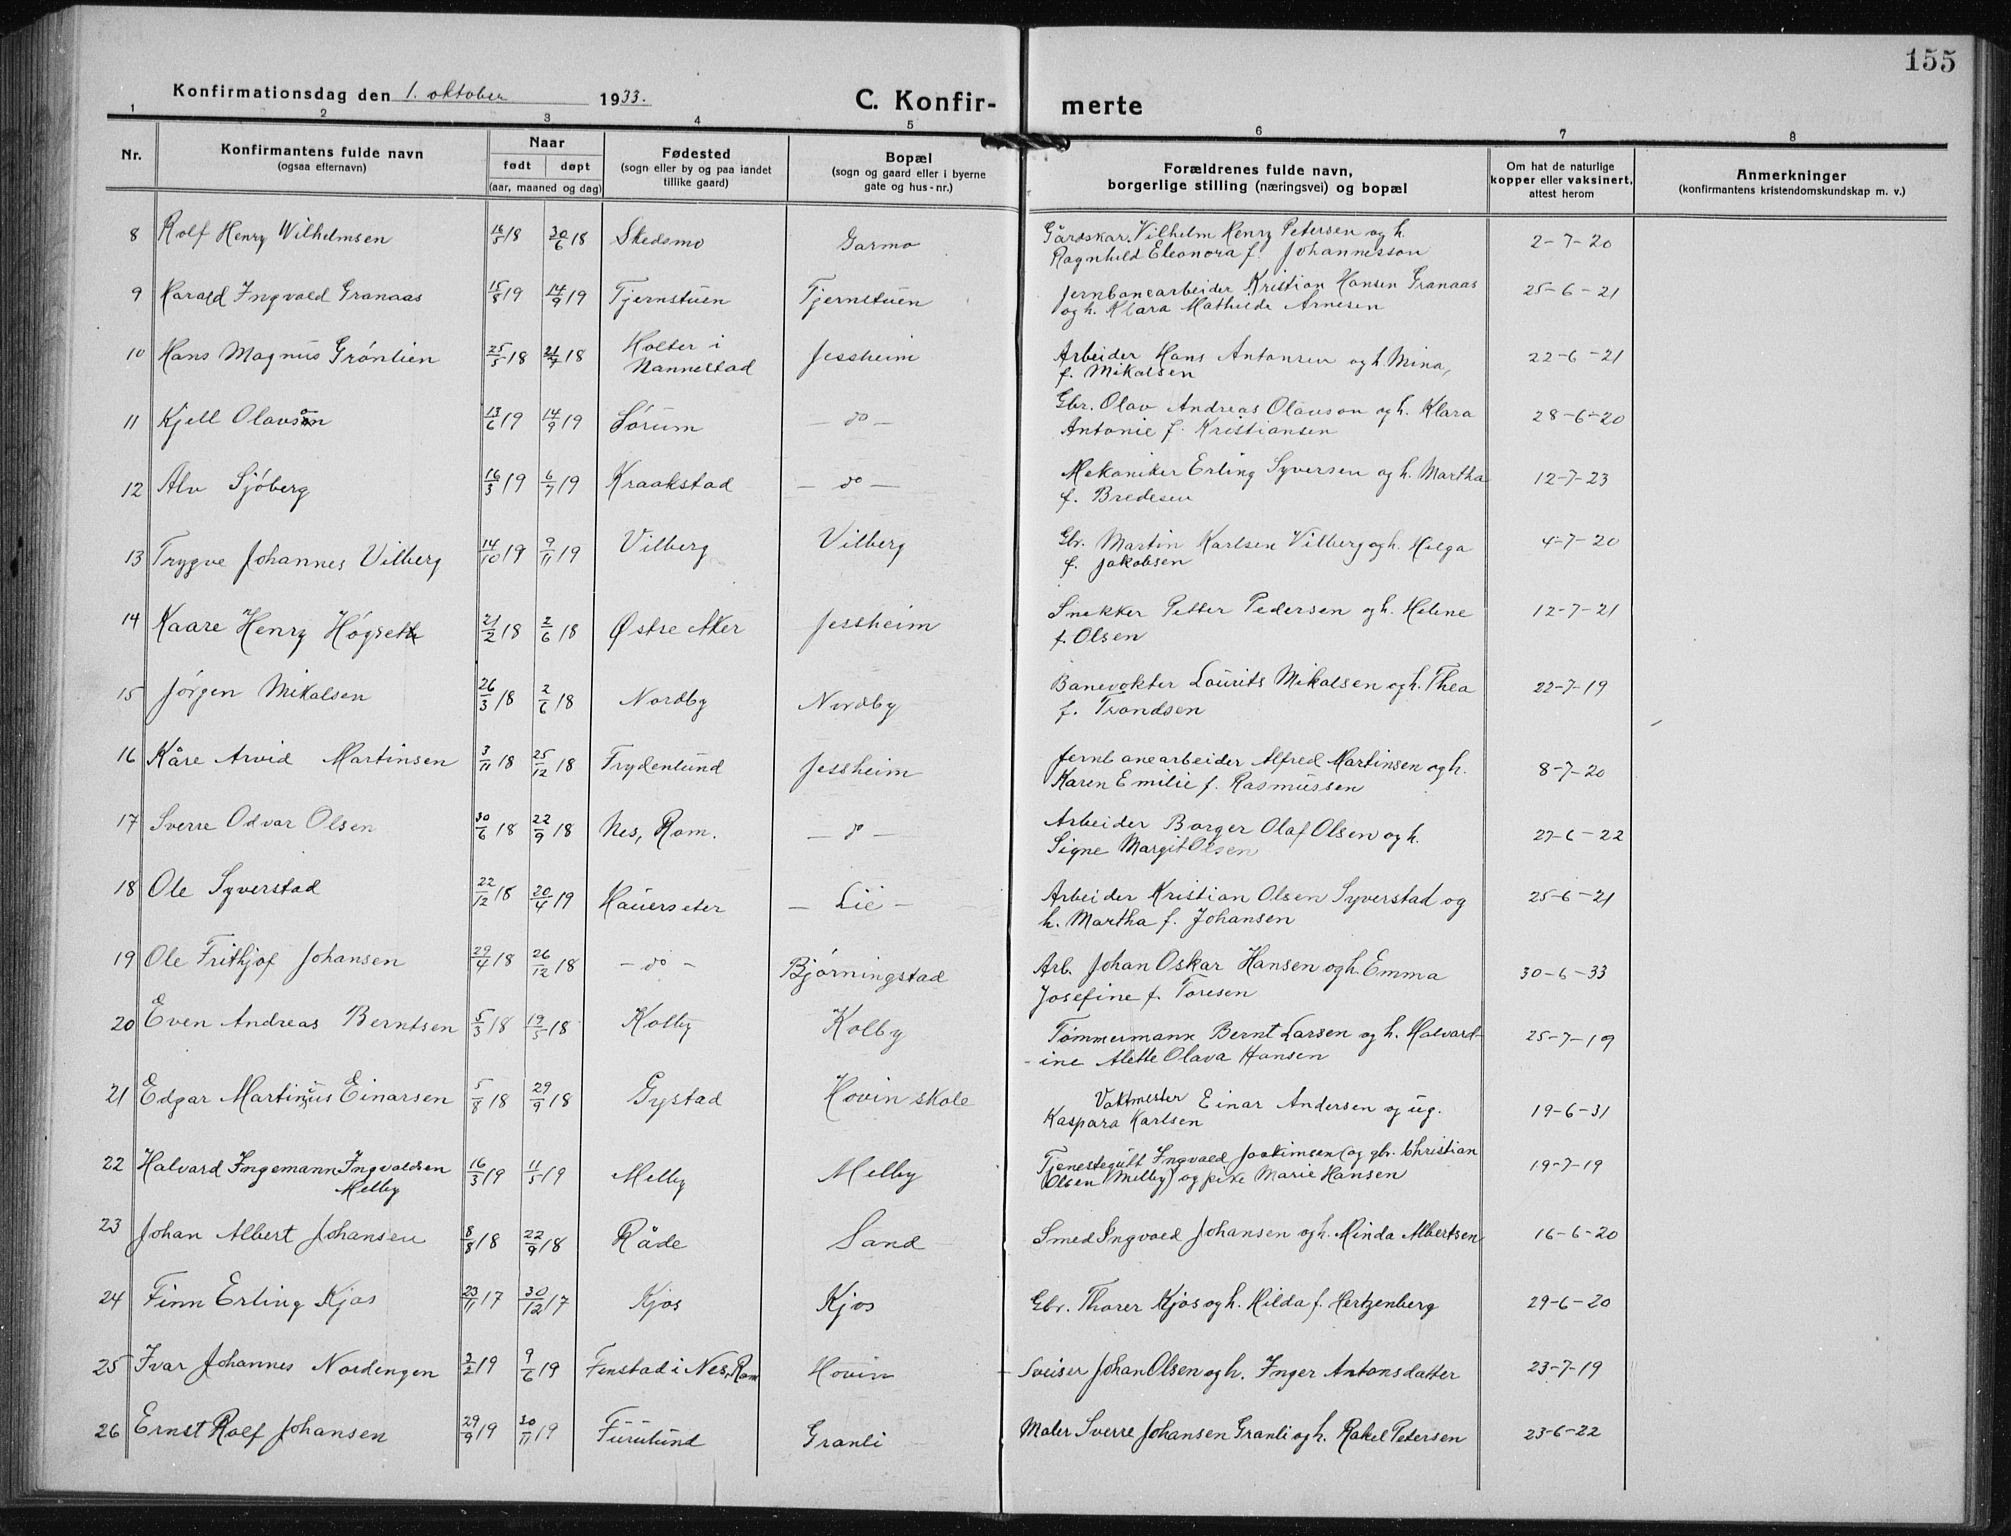 155
Konfirmationsdag den 1. oktober 1933.
C. Konfir- merte
1 2 3 4 5 6 7 8
Nr.
Konfirmantens fulde navn
(ogsaa efternavn)
Naar
født døpt
(aar, maaned og dag)
Fødested
(sogn eller by og paa landet
tillike gaard)
Bopæl
(sogn og gaard eller i byerne
gate og hus-nr.)
Forældrenes fulde navn,
borgerlige stilling (næringsvei) og bopæl
Om hat de naturlige
kopper eller vaksinert,
attest herom
Anmerkninger
(konfirmantens kristendomskundskap m. v.)
8 Rolf Henry Wilhelmsen 16/5 18 30/6 18 Skedsmo Garmo Gårdskar. Vilhelm Henry Petersen og h. 2-7-20
Ragnhild Eleonora f. Johannesson
9 Harald Ingvald Granaas 15/8 19 14/9 19 Tjernstuen Tjernstuen Jernbanearbeider Kristian Hansen Granaas 25-6-21
og h. Klara Mathilde Arnesen
10 Hans Magnus Grönlien 25/5 18 21/7 18 Holter i Jessheim Arbeider Hans Antonsen og h. Mina, 22-6-21
Nannestad f. Mikalsen
11 Kjell Olavson 13/6 19 14/9 19 Sörum - do - Gbr. Olav Andreas Olavson og h. Klara 28-6-20
Antonie f. Kristiansen
12 Alv Sjöberg 16/3 19 6/7 19 Kraakstad - do - Mekaniker Erling Syversen og h. Martha 12-7-23
f. Bredesen
13 Trygve Johannes Vilberg 14/10 19 9/11 19 Vilberg Vilberg Gbr. Martin Karlsen Vilberg og h. Helga 4-7-20
f. Jakobsen
14 Kaare Henry Högseth 21/2 18 2/6 18 Østre Aker Jessheim Snekker Petter Pedersen og h. Helene 12-7-21
f. Olsen
15 Jörgen Mikalsen 26/3 18 2/6 18 Nordby Nordby Banevokter Laurits Mikalsen og h. Thea 22-7-19
f. Trondsen
16 Kåre Arvid Martinsen 3/11 18 25/12 18 Frydenlund Jessheim Jernbanearbeider Alfred Martinsen og h. 8-7-20
Karen Emilie f. Rasmussen
17 Sverre Odvar Olsen 30/6 18 22/9 18 Nes, Rom. - do - Arbeider Borger Olaf Olsen og h. 27-6-22
Signe Margit Olsen
18 Ole Syverstad 22/12 18 20/4 19 Hauerseter - Lie - Arbeider Kristian Olsen Syverstad og 25-6-21
h. Martha f. Johansen
19 Ole Frithjof Johansen 29/4 18 26/12 18 - do - Bjørningstad Arb. Johan Oskar Hansen og h. Emma 30-6-33
Josefine f. Toresen
20 Even Andreas Berntsen 5/3 18 19/5 18 Kolby Kolby Tømmermann Bernt Larsen og h. Halvard- 25-7-19
-ine Alette Olava Hansen
21 Edgar Martinius Einarsen 5/8 18 29/9 18 Gystad Hovin skole Vaktmester Einar Andersen og ug. 19-6-31
Kaspara Karlsen
22 Halvard Ingemann Ingvaldsen 16/3 19 11/5 19 Melby Melby Tjenestegutt Ingvald Joakimsen (og gbr. Christian 19-7-19
Melby Olsen Melby) og pike Marie Hansen
23 Johan Albert Johansen 8/8 18 22/9 18 Råde Sand Smed Ingvald Johansen og h. Minda Albertsen 16-6-20
24 Finn Erling Kjos 23/11 17 30/12 17 Kjos Kjos Gbr. Thorer Kjos og h. Hilda f. Hertzenberg 29-6-20
25 Ivar Johannes Nordengen 3/2 19 9/6 19 Fenstad i Nes, Rom Hovin Sveiser Johan Olsen og h. Inger Antonsdatter 23-7-19
26 Ernst Rolf Johansen 29/9 19 30/11 19 Furulund Granli Maler Sverre Johansen Granli og h. Rakel Petersen 23-6-22